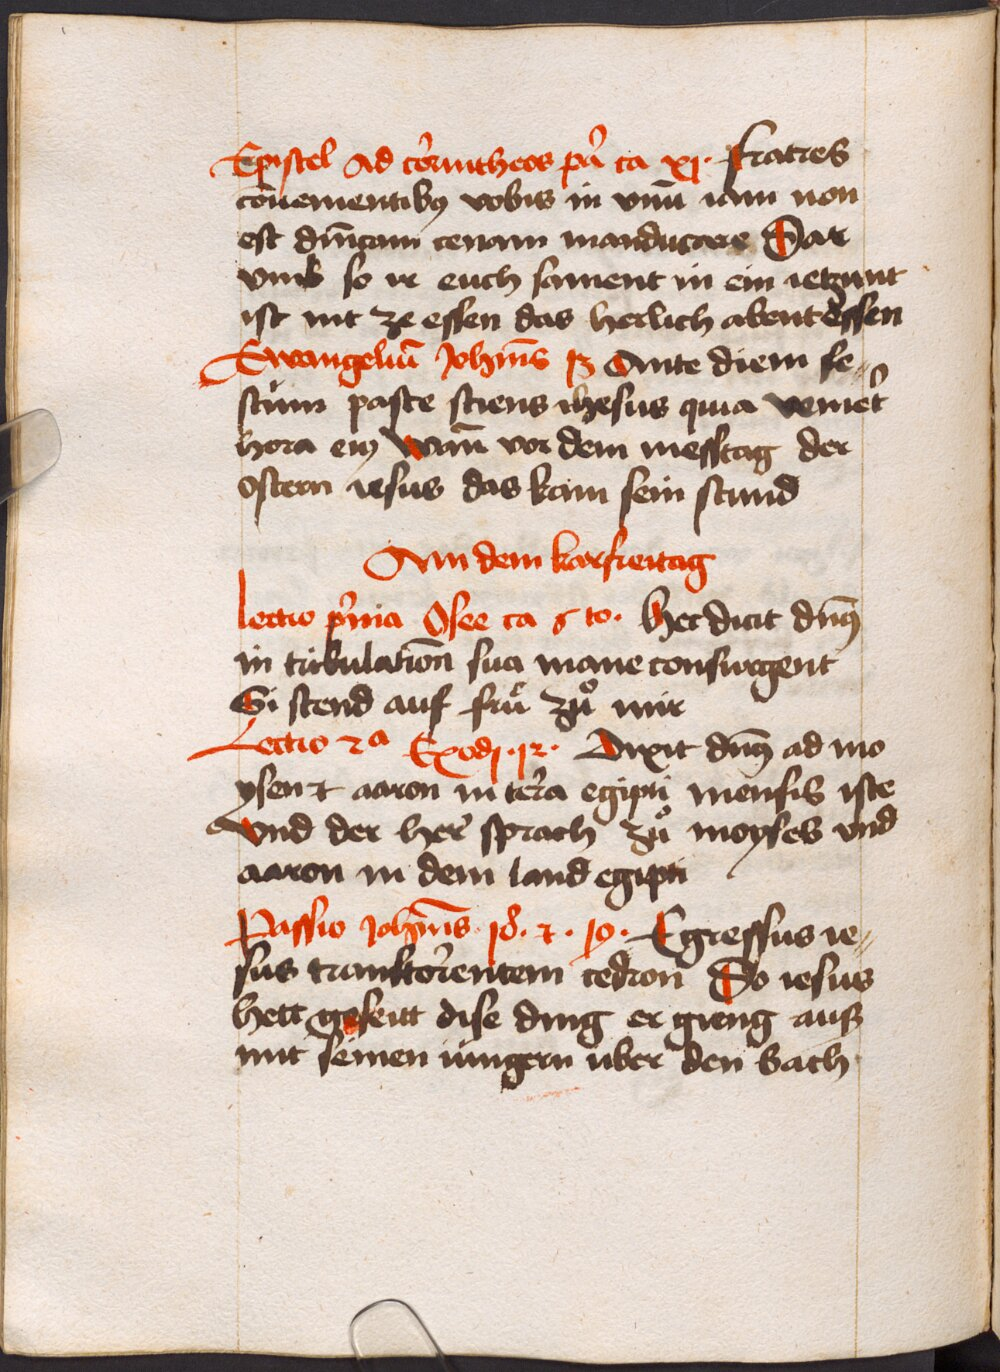 Epistel Ad cor̄intheos pᵃ ca xj. Fratres
cōuenientibꝰ vobis in vnū iam non
est dn̄icam cenam manducare Dar
vmb so ir euch sament in ein ietzunt
ist nit ze essen das herlich abent essen
Ewangeliū Joh̄nis 13 Ante diem fe⸗
stum pasce sciens ihesus quia veniet
hora eiꝰ Wān vor dem messtag der
ostern iesus das kam sein stund
Am dem karfreitag
Lectio p̄ma Osee ca 6 to. hec dicit dn̄s
in tribulation̄ sua mane consurgent
Si stend auf frů zů mir
Lectio 2a Exodj. 12. Dixit dn̄s ad mo
ysen ⁊ aaron in terra egipti mensis iste
Vnd der her̄ sprach zů moyses vnd
aaron in dem land egipti
Passio Joh̄nis. 18. ⁊. 19. Egressus ie⸗
sus trans torrentem cedron Do iesus
hett geseitt dise ding er gieng auß
mit seinen iungern uber den bach